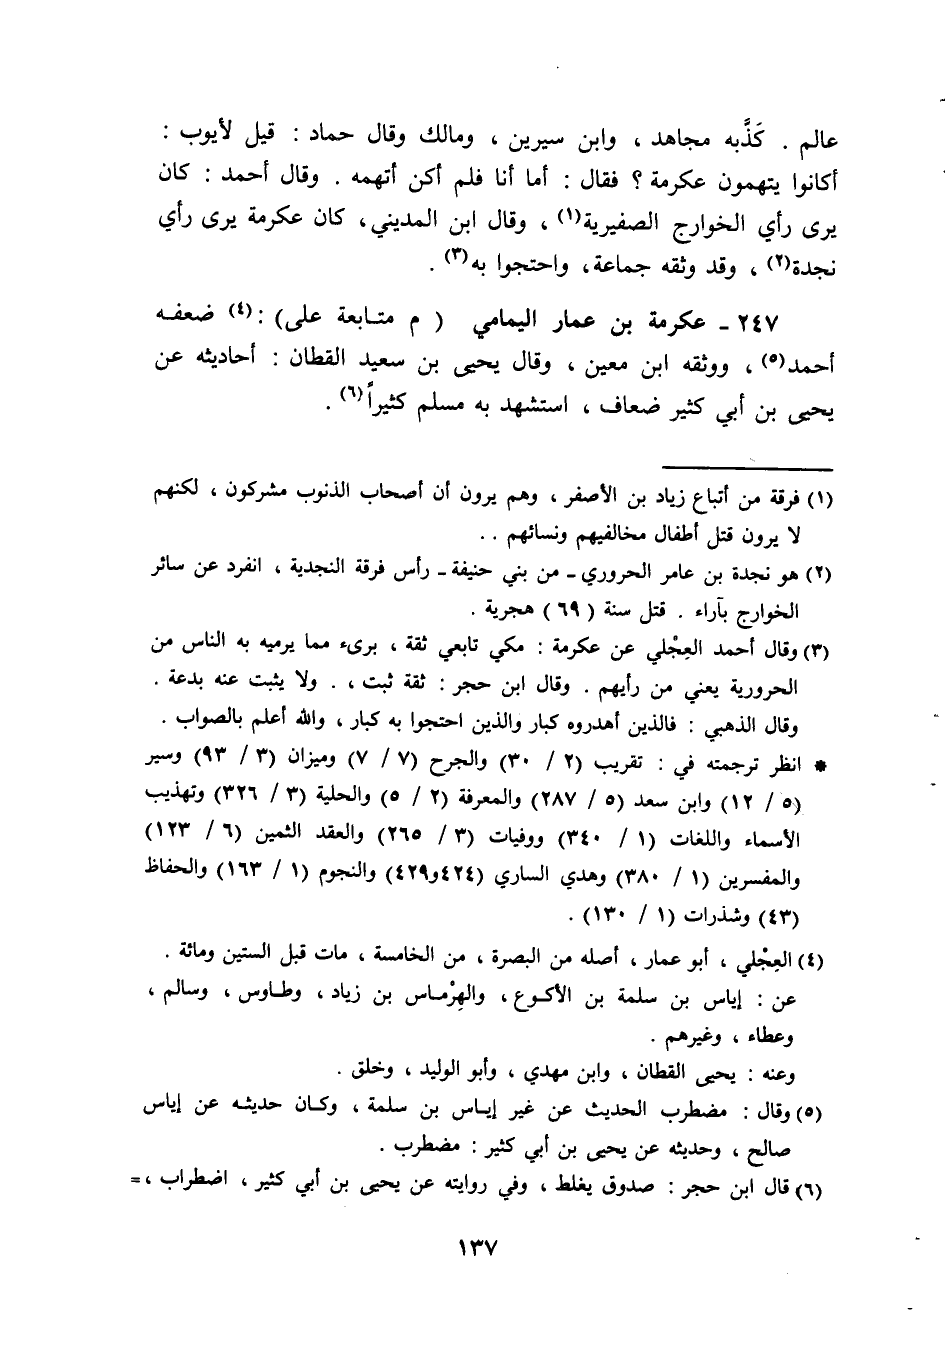 عالم . كَذَّبه مجاهد ، وابن سيرين ، ومالك وقال حماد : قيل لأيوب :
أكانوا يتهمون عكرمة ؟ فقال : أما أنا فلم أكن أتهمه . وقال أحمد : كان
يرى رأي الخوارج الصفيرية(١) ، وقال ابن المديني، كان عكرمة يرى رأي
نجدة(٢) ، وقد وثقه جماعة، واحتجوا به(٣) .
٢٤٧ ـ عكرمة بن عمار اليمامي ( م متـابعة على) :(٤) ضعفـه
أحمد(٥) ، ووثقه ابن معين ، وقال يحيى بن سعيد القطان : أحاديثه عن
يحيى بن أبي كثير ضعاف ، استشهد به مسلم كثيراً(٦) .
(١) فرقة من أتباع زياد بن الأصفر ، وهم يرون أن أصحاب الذنوب مشركون ، لكنهم
لا يرون قتل أطفال مخالفيهم ونسائهم . .
(٢) هو نجدة بن عامر الحروري ـ من بني حنيفة ـ رأس فرقة النجدية ، انفرد عن سائر
الخوارج بآراء . قتل سنة ( ٦٩ ) هجرية .
(٣) وقال أحمد العِجْلي عن عكرمة : مكي تابعي ثقة ، برىء مما يرميه به الناس من
الحرورية يعني من رأيهم . وقال ابن حجر : ثقة ثبت ، . ولا يثبت عنه بدعة .
وقال الذهبي : فالذين أهدروه كبار والذين احتجوا به كبار ، والله أعلم بالصواب .
* انظر ترجمته في : تقريب (٢ / ٣٠) والجرح (٧ / ٧) وميزان (٣ / ٩٣) وسير
(٥ / ١٢) وابن سعد (٥ / ٢٨٧) والمعرفة (٢ / ٥) والحلية (٣ / ٣٢٦) وتهذيب
الأسماء واللغات (١ / ٣٤٠) ووفيات (٣ / ٢٦٥) والعقد الثمين (٦ / ١٢٣)
والمفسرين (١ / ٣٨٠) وهدي الساري (٤٢٤و٤٢٩) والنجوم (١ / ١٦٣) والحفاظ
(٤٣) وشذرات (١ / ١٣٠) .
(٤) العِجْلي ، أبو عمار ، أصله من البصرة ، من الخامسة ، مات قبل الستين ومائة .
عن : إياس بن سلمة بن الأكـوع ، والهِرْمـاس بن زياد ، وطـاوس ، وسـالم ،
وعطاء ، وغيرهم .
وعنه : يحيى القطان ، وابن مهدي ، وأبو الوليد ، وخلق .
(٥) وقال : مضطرب الحديث عن غير إيـاس بن سلمة ، وكـان حديثـه عن إياس
صالح ، وحديثه عن يحيى بن أبي كثير : مضطرب .
(٦) قال ابن حجر : صدوق يغلط ، وفي روايته عن يحيى بن أبي كثير ، اضطراب ،=
١٣٧